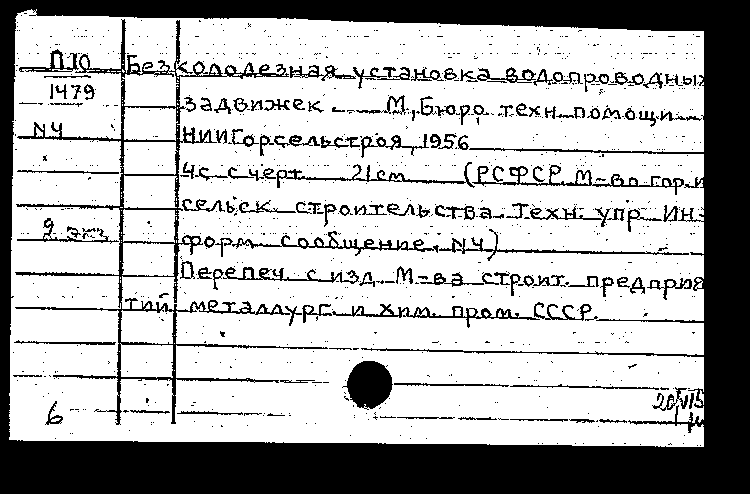 П10
1479
N4
2 экз
Безколодезная установка водопроводных
задвижек М, Бюро техн. помощи
НИИГорсельстроя, 1956
4с с черт 21см (РСФСР. М-во гор. и
сельск. строительства. Техн. упр. Ин-
форм. сообщение. N4)
Перепеч. с изд. М-ва строит. предприя
тий металлург. и хим. пром. СССР.
6